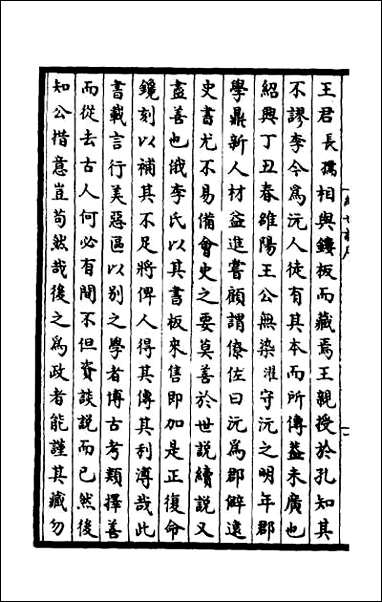 王君長孺相與鏤板而藏焉王親授於孔知其
不謬李今為沅人徒有其本而所傳益未廣也
紹興丁丑春雒陽王公無染濯守沅之明年郡
學鼎新人材益進嘗顧謂僚佐曰沅為郡僻遠
史書尤不易備會史之要莫善於世說續說又
盡善也俄李氏以其書板來售即加是正復命
鏡刻以補其不足將俾人得其傳其利溥哉此
書載言行美惡區以別之學者博古考類擇善
而從去古人何必有間不但資談說而已然後
知公措意豈苟然哉後之為政者能謹其藏勿